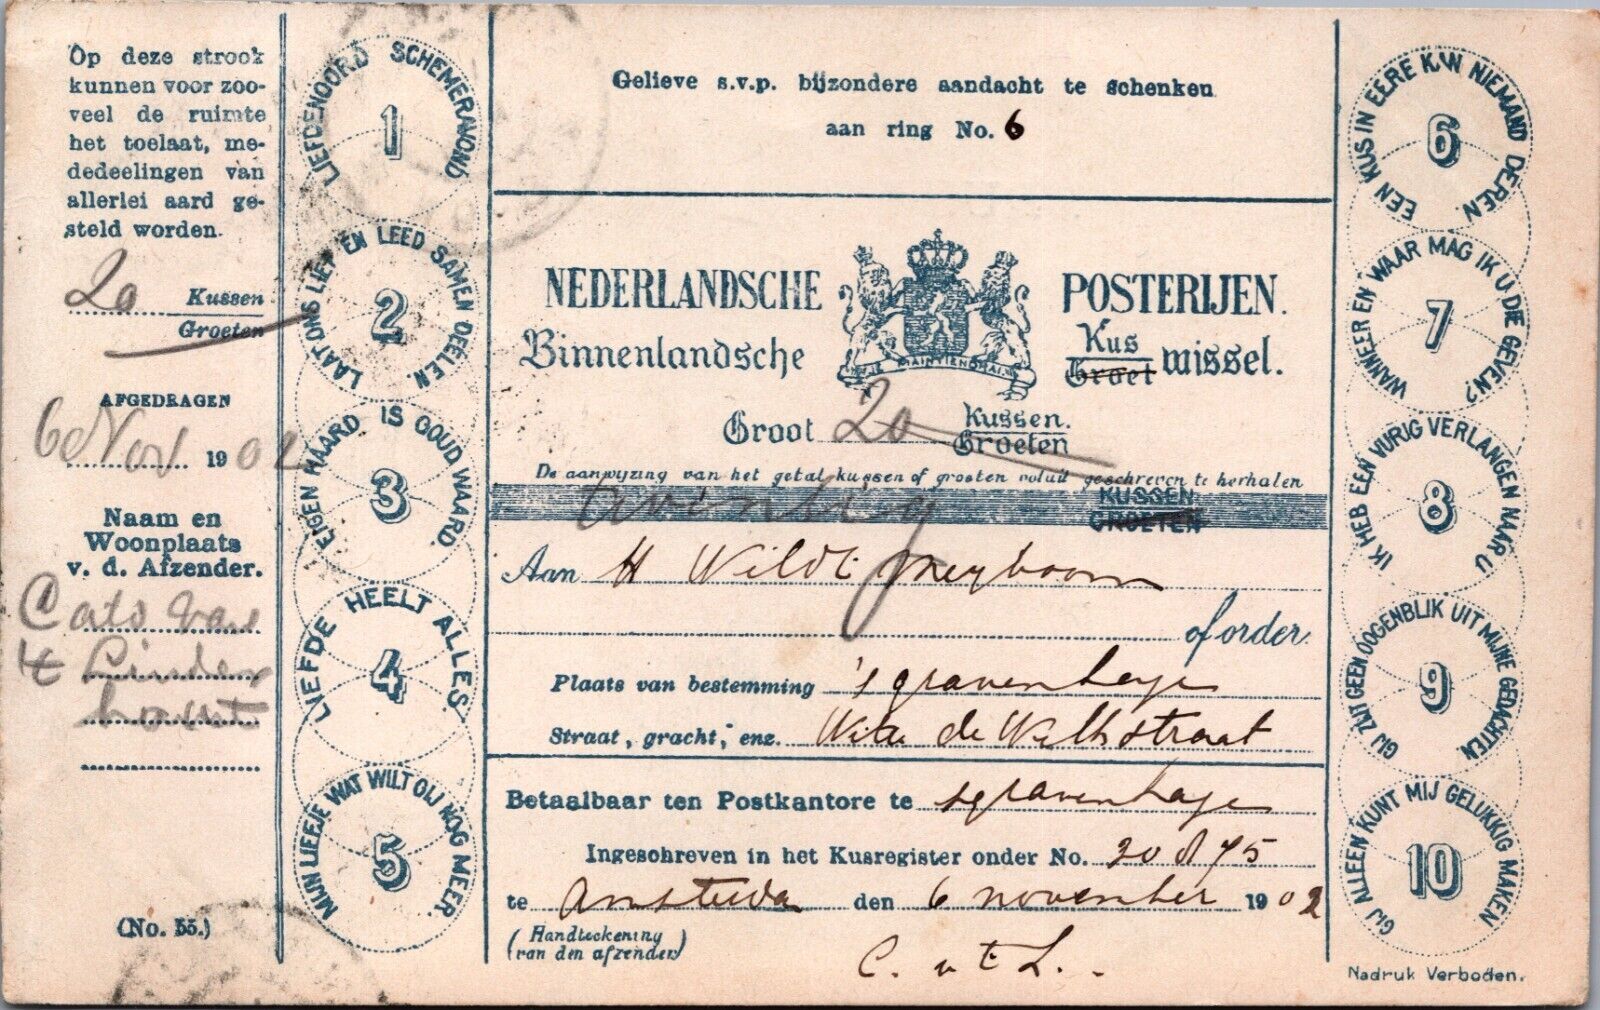 Op deze strook
kunnen voor zoo-
veel de ruimte
het toelaat, me-
dedeelingen van
allerlei aard ge-
steld worden.
20 Kussen
Groeten
AFGEDRAGEN
6 Nov 1902
Naam en
Woonplaats
v. d. Afzender.
Cato van
't Linden
hout
(No. 55.)
LIEFDENOORD SCHEMERAVOND
1
LAAT ONS LIEF EN LEED SAMEN DEELEN.
2
EIGEN HAARD IS GOUD WAARD.
3
LIEFDE HEELT ALLES.
4
MIJN LIEFJE WAT WILT GIJ NOG MEER.
5
Gelieve s.v.p. bijzondere aandacht te schenken
aan ring No. 6
NEDERLANDSCHE POSTERIJEN.
JE MAINTIENDRAI
Binnenlandsche Kus Groet wissel.
Groot 20 Kussen.
Groeten
De aanwijzing van het getal kussen of groeten voluit geschreven te herhalen
twintig KUSSEN
GROETEN
Aan H Wildt Meyboom
of order.
Plaats van bestemming 's gravenhage
Straat, gracht, enz. Witte de Withstraat
Betaalbaar ten Postkantore te sgravenhage
Ingeschreven in het Kusregister onder No. 20875
te Amsterdam den 6 november 1902
(Handteekening
van den afzender)
C. v t L.
EEN KUS IN EERE KAN NIEMAND DEREN.
6
WANNEER EN WAAR MAG IK U DIE GEVEN?
7
IK HEB EEN VURIG VERLANGEN NAAR U
8
GIJ ZIJT GEEN OOGENBLIK UIT MIJNE GEDACHTEN.
9
GIJ ALLEEN KUNT MIJ GELUKKIG MAKEN
10
Nadruk Verboden.